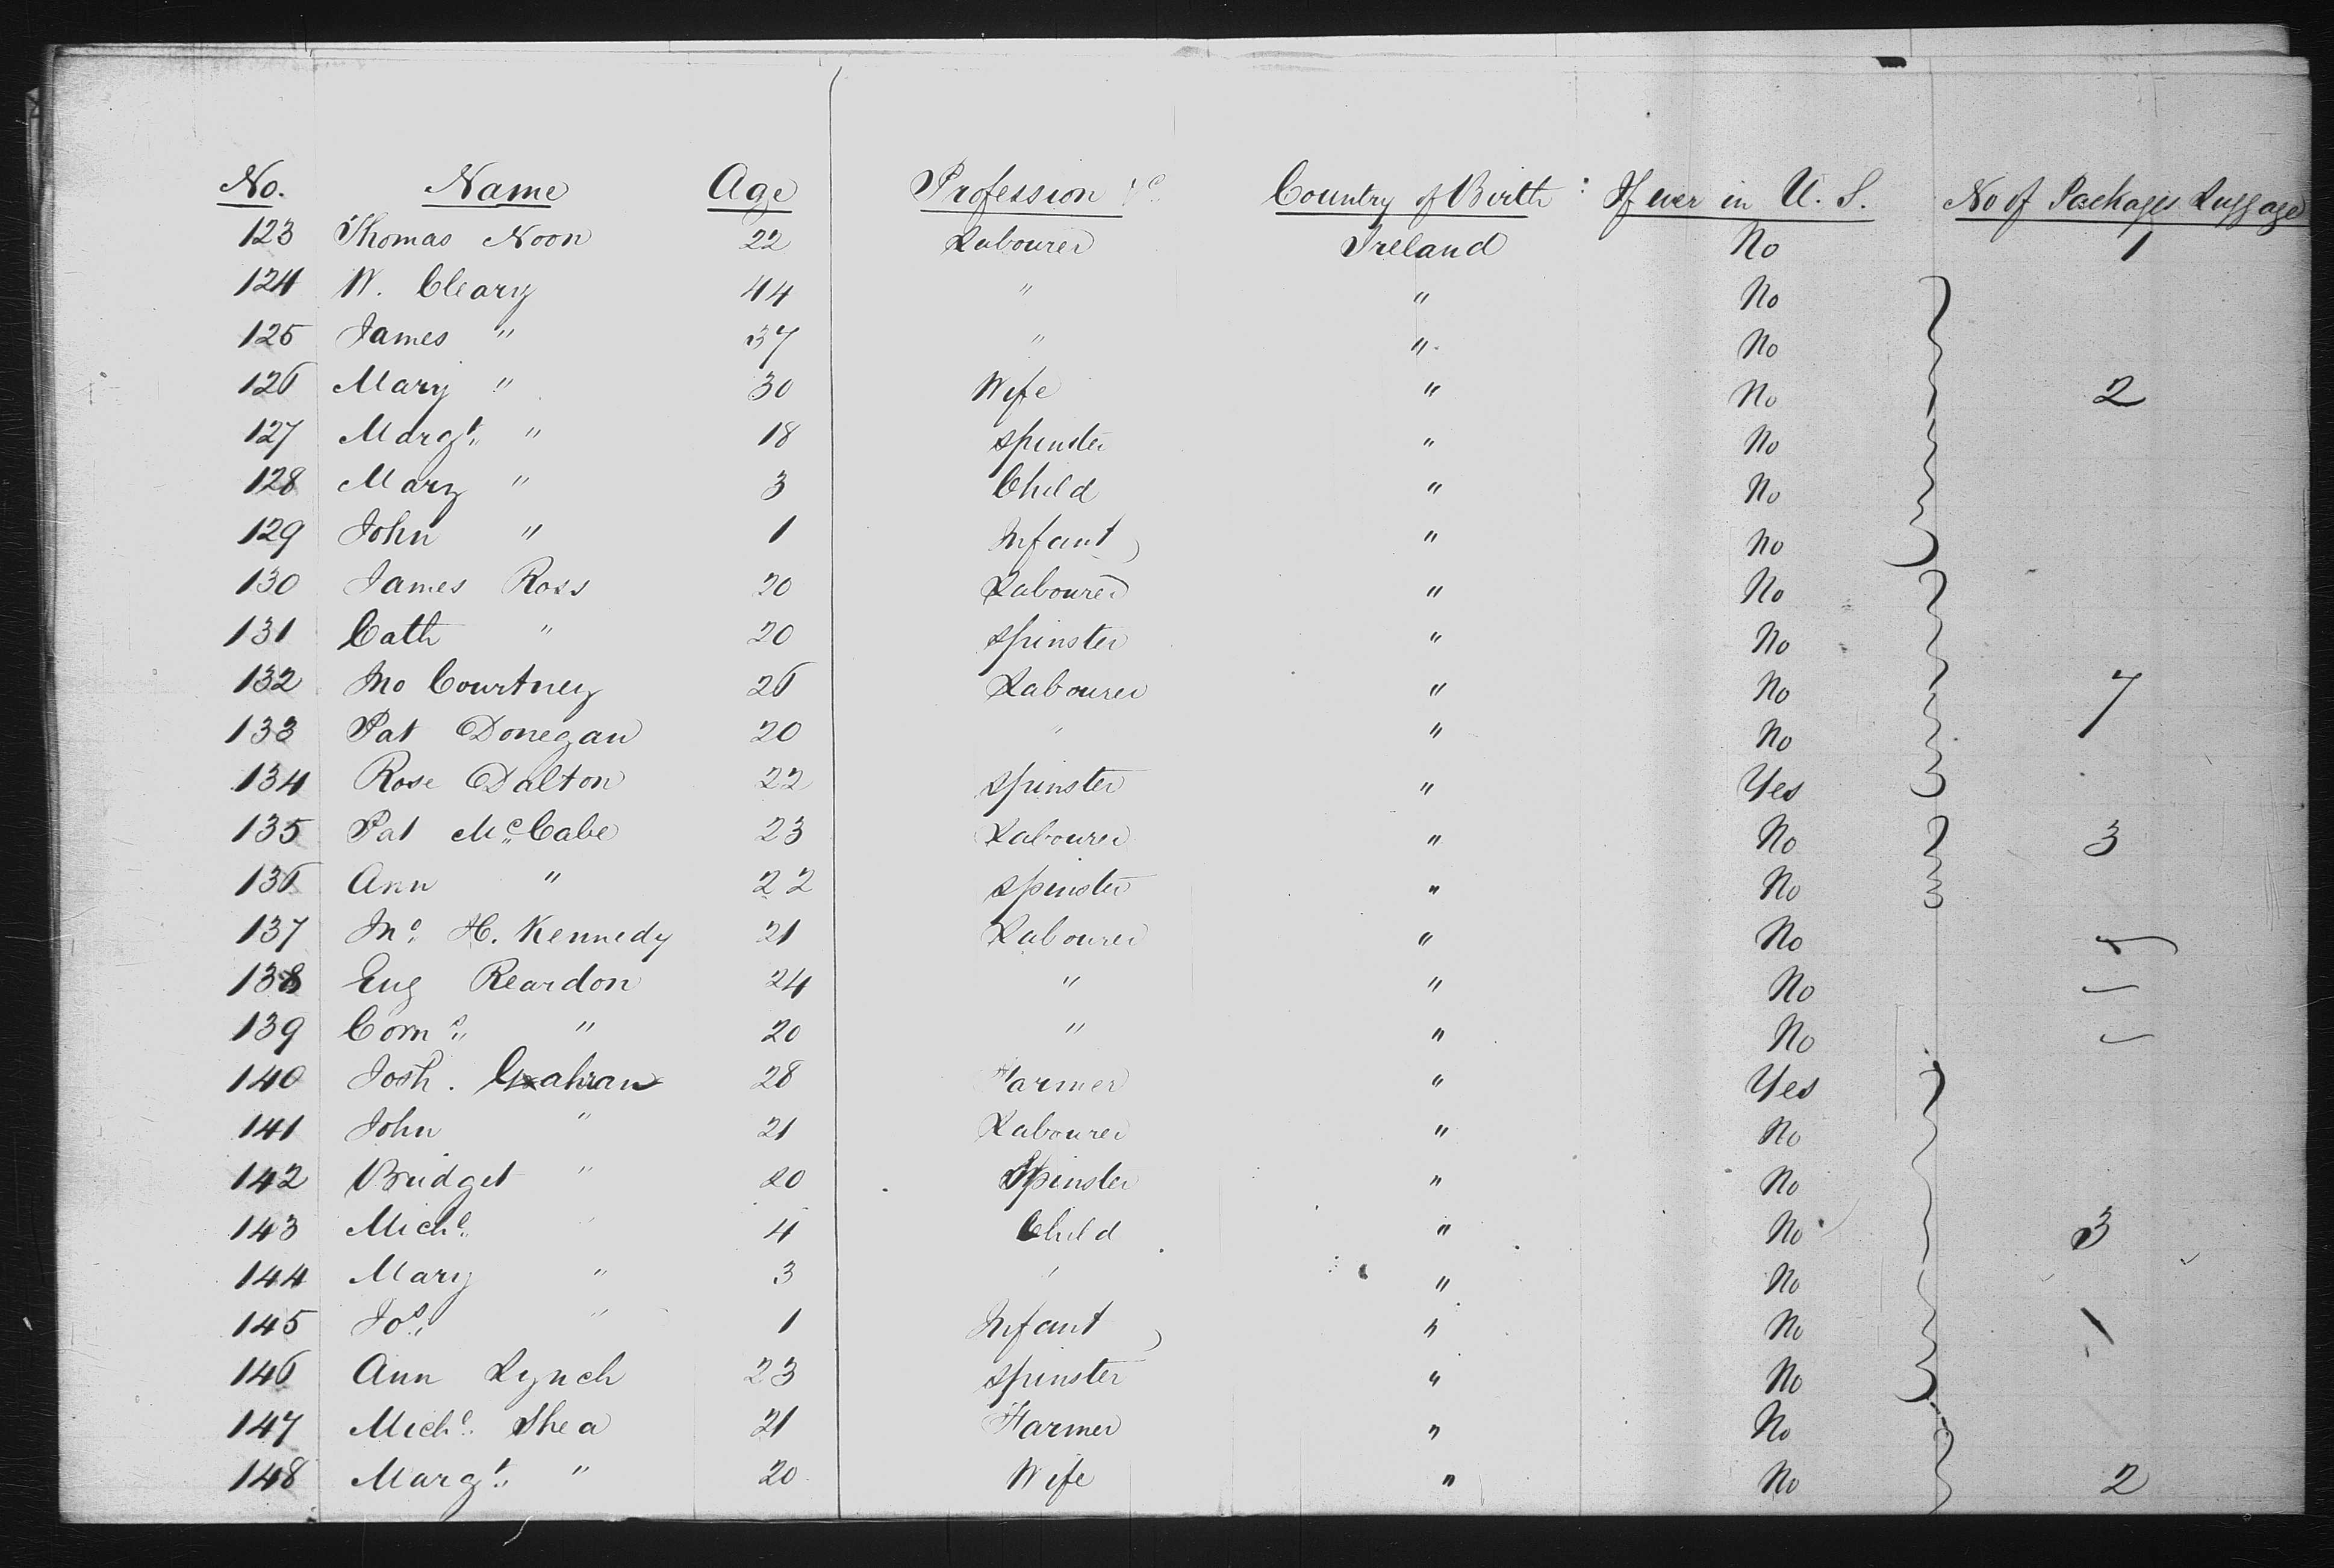 No. Name Age Profession &c Country of Birth If ever in U. S. No of Packages Luggage
123 Thomas Noon 22 Labourer Ireland No 1
124 W. Cleary 44 " " No
125 James " 37 " " No
126 Mary " 30 Wife " No 2
127 Margt. " 18 Spinster " No
128 Mary " 3 Child " No
129 John " 1 Infant " No
130 James Ross 20 Labourer " No
131 Cath " 20 Spinster " No
132 Jno Courtney 26 Labourer " No 7
133 Pat Donegan 20 " " No
134 Rose Dalton 22 Spinster " Yes
135 Pat McCabe 23 Labourer " No 3
136 Ann " 22 Spinster " No
137 Jno. H. Kennedy 21 Labourer " No
138 Eug Reardon 24 " " No
139 Corns. " 20 " " No
140 Josh. 28 Farmer " Yes
141 John " 21 Labourer " No
142 Bridget " 20 Spinster " No
143 Michl. " 4 Child " No 3
144 Mary " 3 " " No
145 Jos. " 1 Infant " No
146 Ann Lynch 23 Spinster " No
147 Michl. Shea 21 Farmer " No
148 Margt. " 20 Wife " No 2